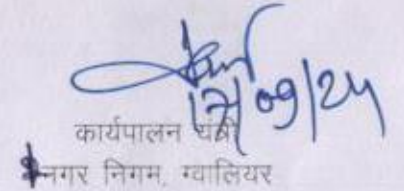 17/09/24
कार्यपालन यंत्री
नगर निगम, ग्वालियर